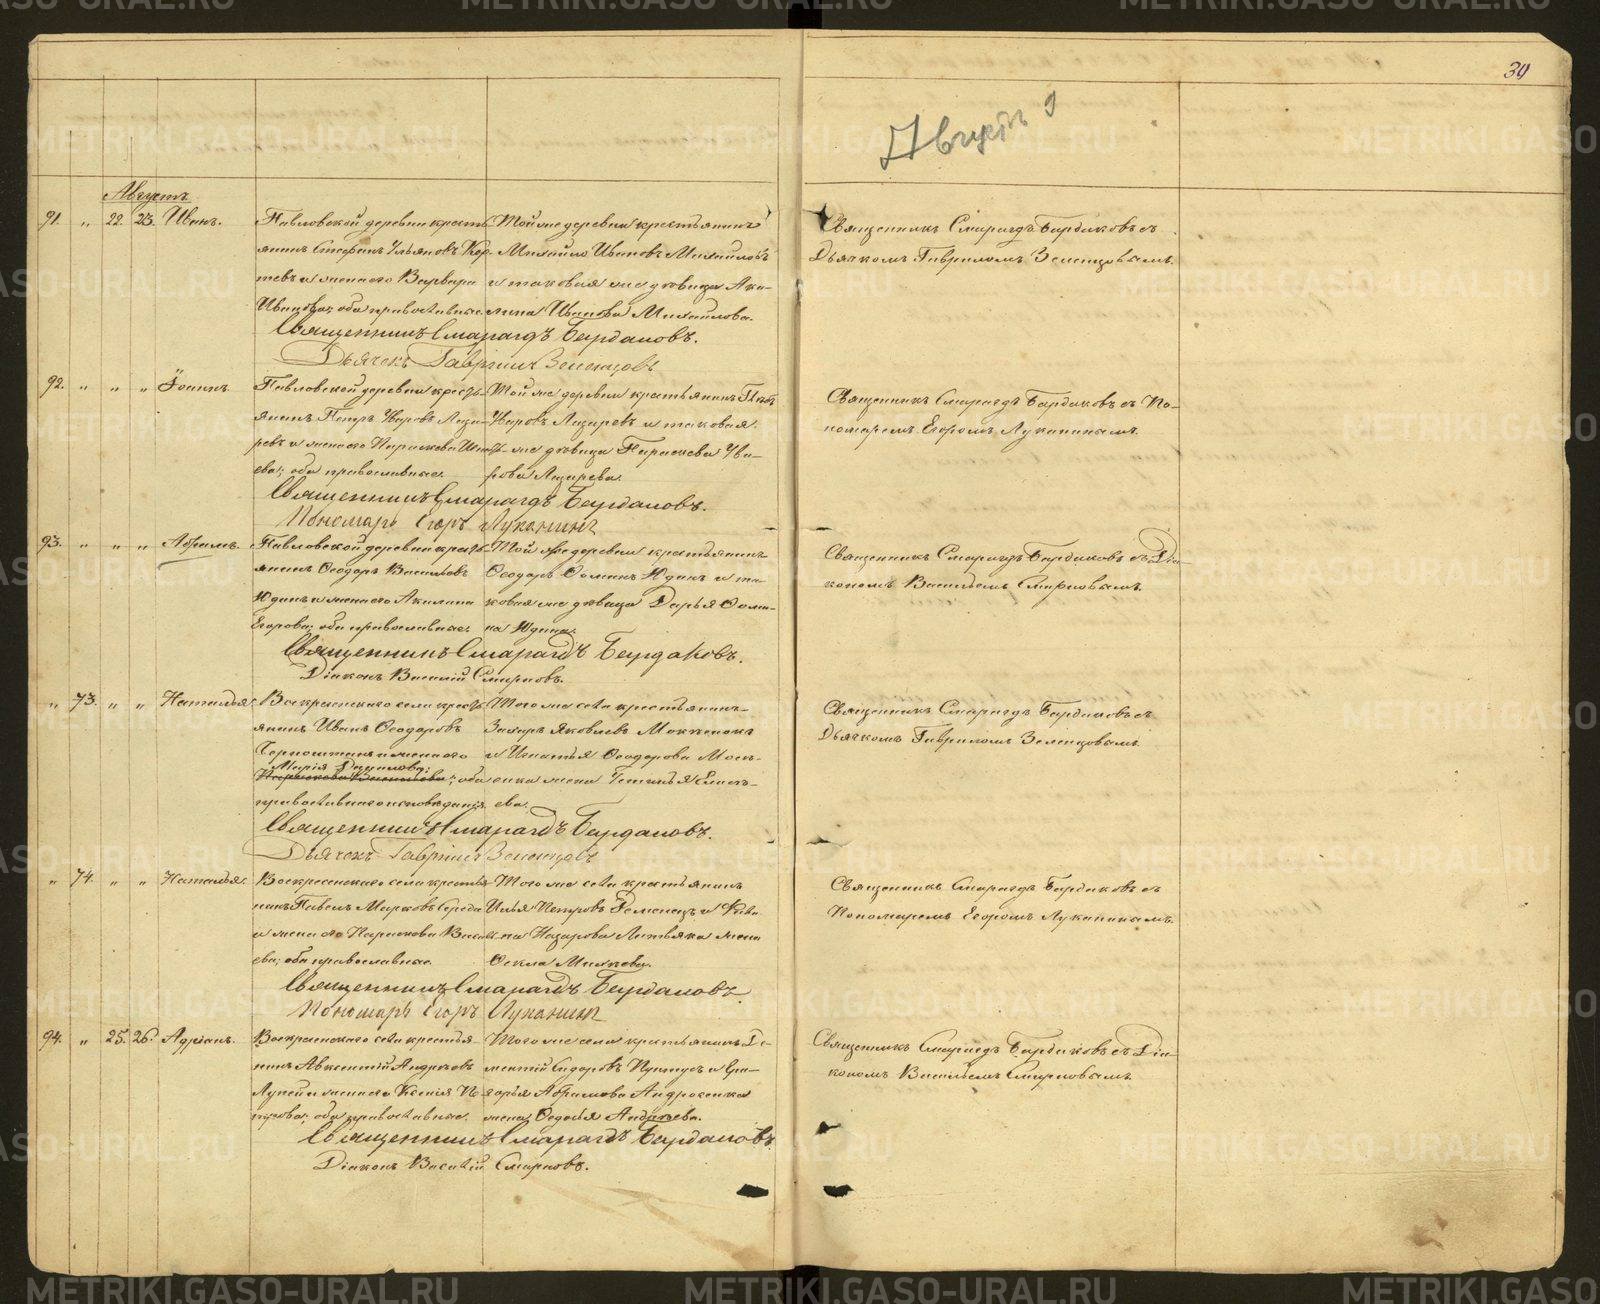 39
Августъ 9
Августъ.
91. " 22. 23. Иванъ.
Павловской деревни кресть-
янинъ Стефанъ Ульяновъ Кор-
тевъ и жена его Варвара
Иванова; оба православные.
Той же деревни крестьянинъ
Михайло Ивановъ Михайловъ
и таковая же девица Аку-
лина Иванова Михайлова.
Священникъ Смарагдъ Бардаковъ.
Дьячекъ Гавріилъ Зеленцовъ
Священникъ Смарагдъ Бардаковъ съ
Дьячкомъ Гавриломъ Зеленцовымъ.
92. " " " Іоаннъ.
Павловской деревни кресть-
янинъ Петръ Уваровъ Лаза-
ревъ и жена его Параскева
ева; оба православные.
Той же деревни крестьянинъ
Уваровъ Лазаревъ и таковая
же девица Параскева Ува-
рова Лазарева.
Священникъ Смарагдъ Бардаковъ.
Пономарь Егоръ Луканинъ
Священникъ Смарагдъ Бардаковъ съ По-
номаремъ Егоромъ Луканинымъ.
93. " " " Абрамъ.
Павловской деревни кресть-
янинъ Ѳеодоръ Васильевъ
Юдинъ и жена его Акилина
Егорова; оба православные.
Той же деревни крестьянинъ
Ѳеодоръ Ѳоминъ Юдинъ и та-
ковая же девица Дарья Ѳоми-
на Юдина.
Священникъ Смарагдъ Бардаковъ.
Діаконъ Василій Смирновъ.
Священникъ Смарагдъ Бардаковъ съ Діа-
кономъ Васильемъ Смирновымъ.
" 73. " " Наталья.
Воскресенскаго села кресть-
янинъ Иванъ Ѳеодоровъ
и жена его
Марія Данилова;
Параскева Васильева; оба
православнаго исповеданія.
Того же села крестьянинъ
Захаръ Яковлевъ
и Игнатья Ѳеодорова Моск-
енка жена
ева.
Священникъ Смарагдъ Бардаковъ.
Дьячекъ Гавріилъ Зеленцовъ
Священникъ Смарагдъ Бардаковъ съ
Дьячкомъ Гавриломъ Зеленцовымъ.
" 74. " " Наталья.
Воскресенскаго села крестья-
нинъ Павелъ Марковъ Середа
и жена его Параскева
ева; оба православные.
Того же села крестьянинъ
Илья Петровъ Деменецъ и
Назарова Литвяка жена
Ѳекла Михеева.
Священникъ Смарагдъ Бардаковъ.
Пономарь Егоръ Луканинъ
Священникъ Смарагдъ Бардаковъ съ
Пономаремъ Егоромъ Луканинымъ.
94. " 25. 26. Адріанъ.
Воскресенскаго села крестья-
нинъ Авксентій Андреевъ
Лупей и жена его Ксенія Пе-
трова; оба православные.
Того же села крестьянинъ Де-
ментій Сидоровъ и Гри-
горья Абрамова Андросенка
жена Ѳедосья Андреева.
Священникъ Смарагдъ Бардаковъ.
Діаконъ Василій Смирновъ.
Священникъ Смарагдъ Бардаковъ съ Діа-
кономъ Васильемъ Смирновымъ.
METRIKI.GASO-URAL.RU